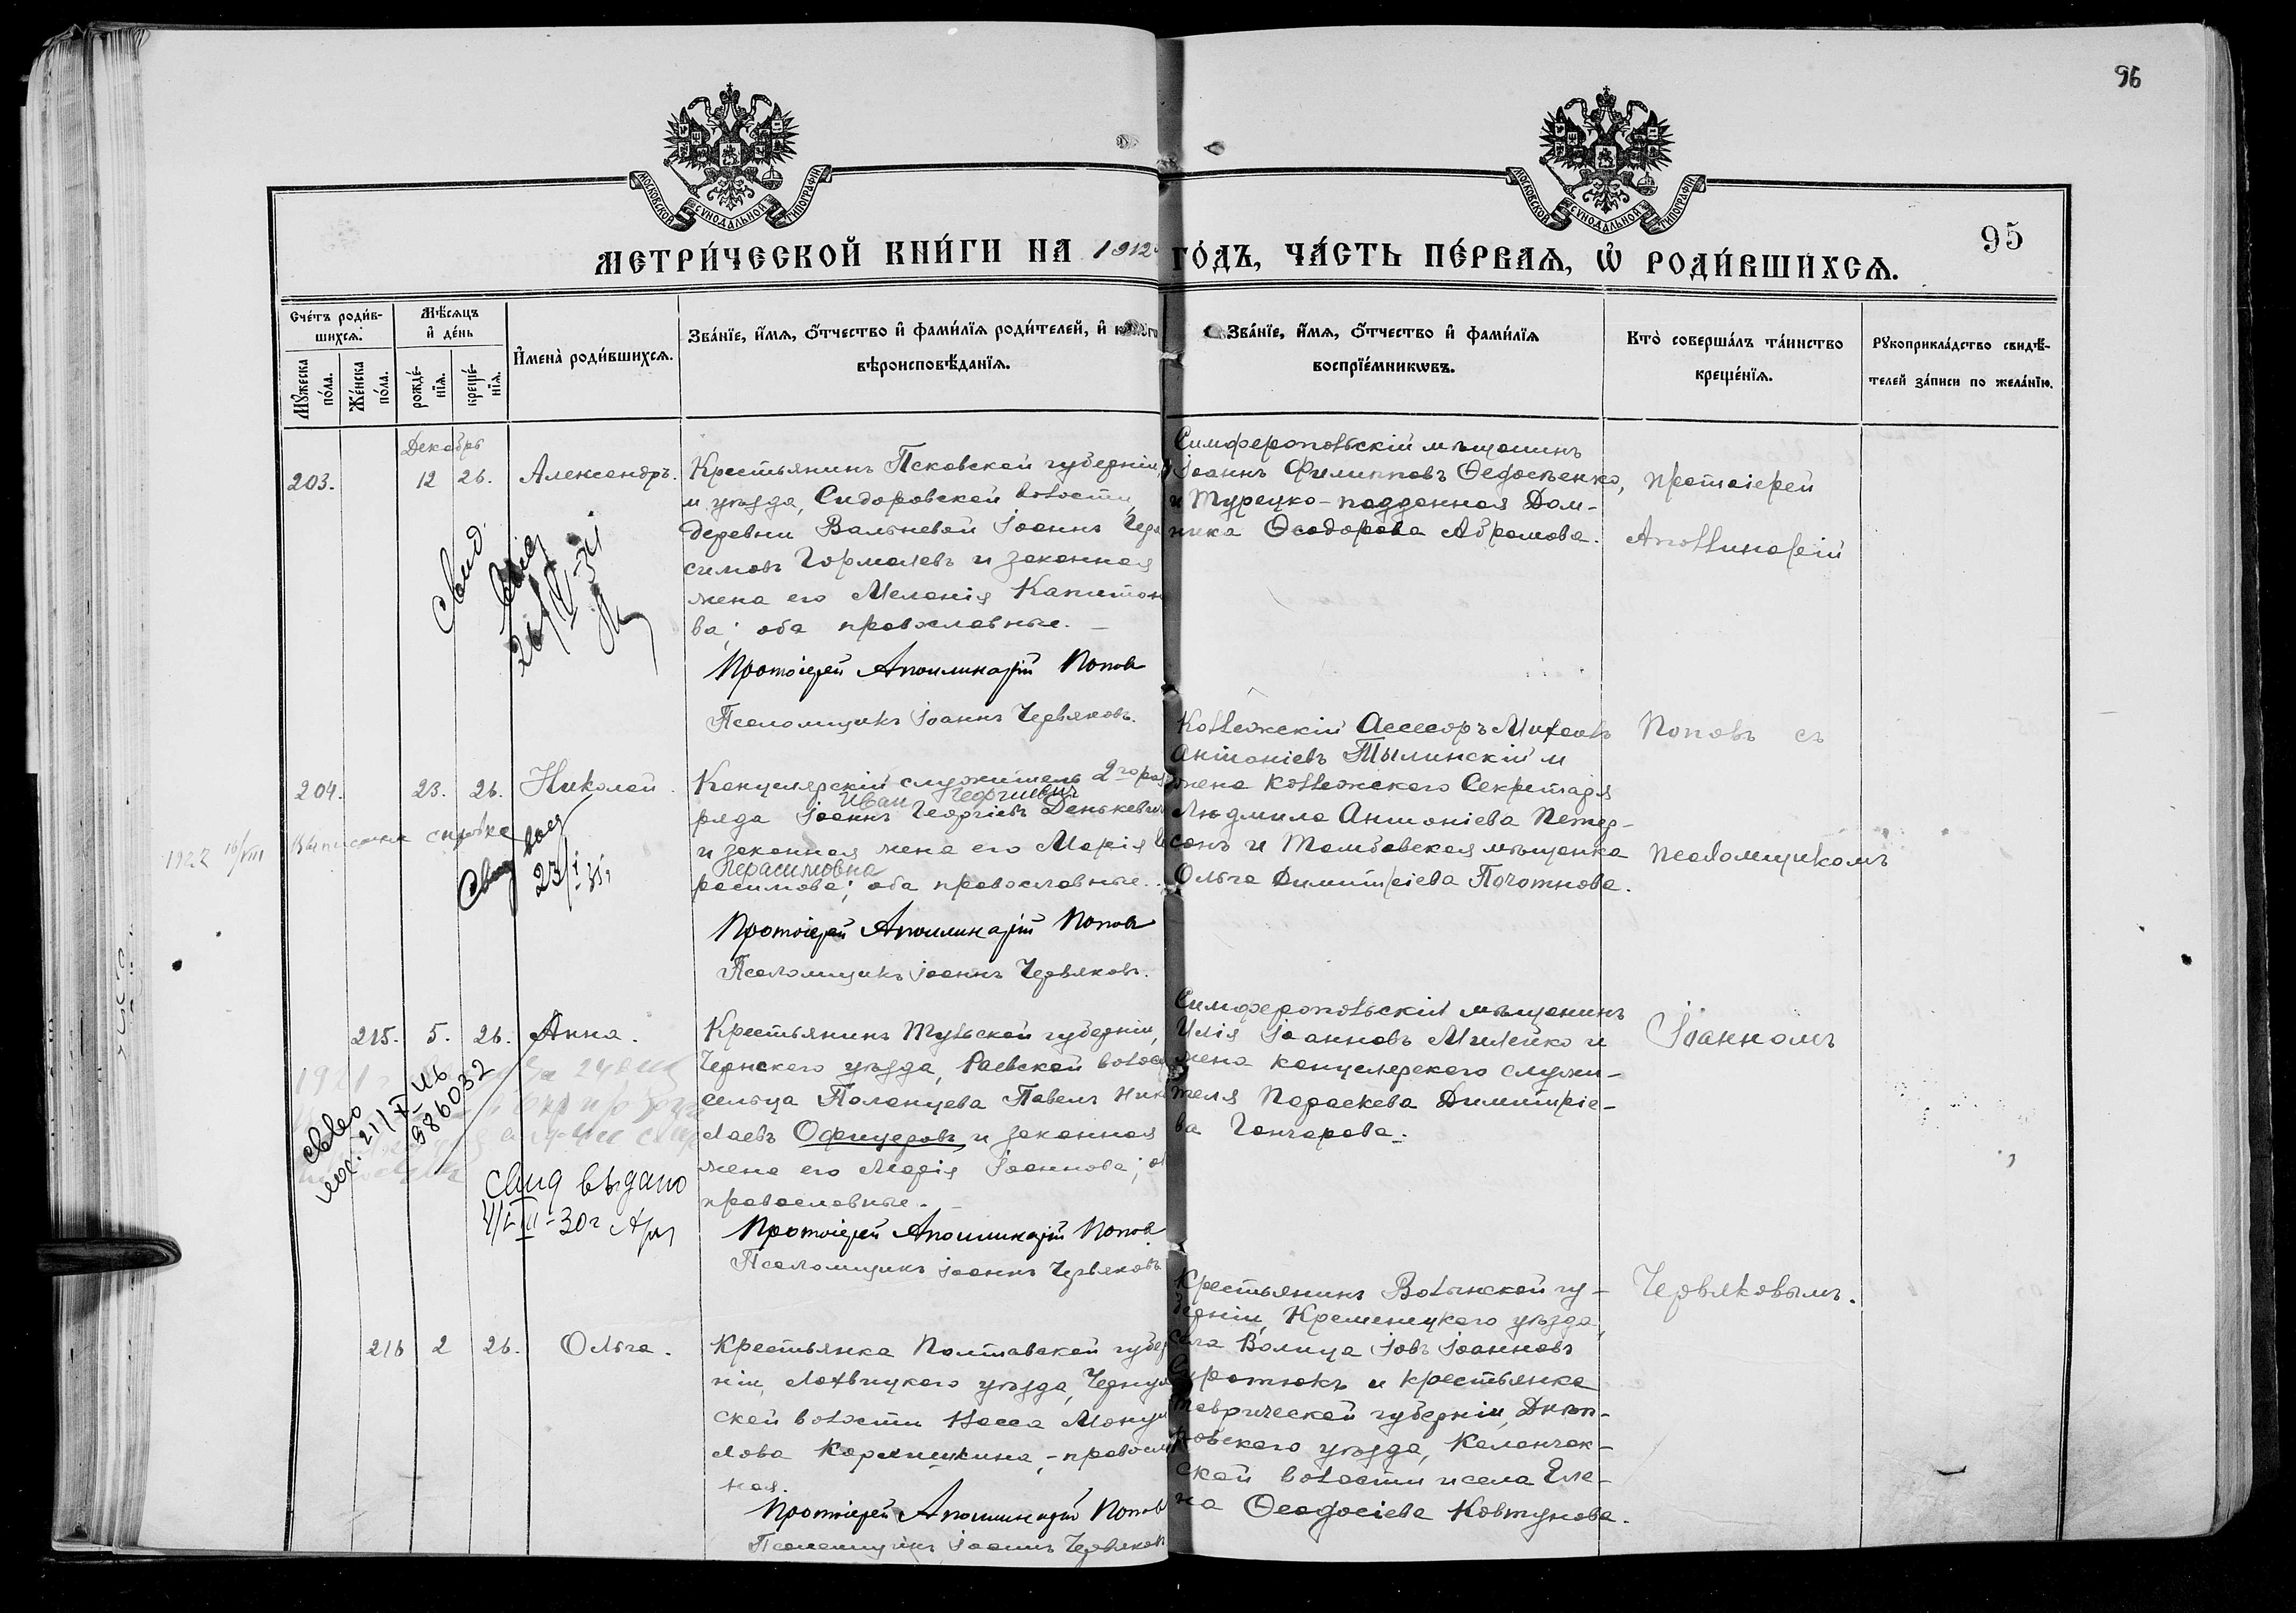 96
МОСКОВСКОЙ СѴНОДАЛЬНОЙ ТИПОГРАФІИ
МОСКОВСКОЙ СѴНОДАЛЬНОЙ ТИПОГРАФІИ
95
МЕТРИ́ЧЕСКОЙ КНИ́ГИ НА 1912 ГО́ДЪ, ЧА́СТЬ ПЕ́РВАѦ, Ѡ҆ РОДИ́ВШИХСѦ.
Сче́тъ роди́вшихсѧ.
Мꙋ́жеска по́ла.
Же́нска по́ла.
Мѣ́сѧцъ и҆ де́нь
рожде́нїѧ.
креще́нїѧ.
И҆мена̀ роди́вшихсѧ.
Зва́нїе, и҆́мѧ, ѻ҆́тчество и҆ фами́лїѧ роди́телей, и҆
вѣроисповѣ́данїѧ.
Зва́нїе, и҆́мѧ, ѻ҆́тчество и҆ фами́лїѧ
воспрїе́мникѡвъ.
Кто̀ соверша́лъ та́инство
креще́нїѧ.
Рꙋкоприкла́дство свидѣ́-
телей за́писи по жела́нїю.
Декабрь
203.
12
26.
Александръ.
Крестьянинъ Псковской губерніи,
и уѣзда, Сидоровской волости,
деревни Вальневой Іоаннъ Гера
симовъ и законная
жена его Меланія Капитон
ва; оба православные.
Протоіерей Аполлинарій Попов
Псаломщикъ Іоаннъ Червяковъ.
Симферопольскій мѣщанинъ
Іоаннъ Филипповъ Ѳедосѣенко,
и Турецко-подданная Дом-
ника Ѳеодорова Абрамова.
Протоіерей
Аполлинарій
свид.
204.
23.
26.
Николай.
Канцелярскій служитель 2го раз
Иван Георгиевич
ряда Іоаннъ Георгіевъ Данькевич
и законная жена его Марія Ге
Герасимовна
расимова; оба православные.
Протоіерей Аполлинарій Попов
Псаломщикъ Іоаннъ Червяковъ.
Коллежскій Ассесоръ Михаилъ
Антоніевъ Тылинскій и
жена Коллежскаго Секретаря
Людмила Антоніева Петер-
сонъ и Тамбовская мѣщанка
Ольга Димитріева
Поповъ съ
псаломщикомъ
1922 10/VIII
Выписана справка
23/I
215.
5.
26.
Анна.
Крестьянинъ Тульской губерніи,
Чернскаго уѣзда, Раевской волос
сельца Поланцева Павелъ Ник
лаевъ Офицеровъ и законная
жена его Марія Іоаннова; об
православные.
Протоіерей Аполлинарій Попов
Псаломщикъ Іоаннъ Червяковъ
Симферопольскій мѣщанинъ
Илія Іоанновъ Милейко и
жена канцелярскаго служи-
теля Параскева Димитріе-
ва Гончарова.
Іоанномъ
586032
свид выдано
-30г
216
2
26.
Ольга.
Крестьянка Полтавской губер
ніи, Лохвицкаго уѣзда,
ской волости
лова - правосла
ная.
Протоіерей Аполлинарій Попов
Псаломщикъ Іоаннъ Червяковъ
Крестьянинъ Волынской гу-
берніи, Кременецкаго уѣзда,
села Волица Іовъ Іоанновъ
Сиротюкъ и крестьянка
Таврической губерніи, Днѣп-
ровскаго уѣзда, Каланчак-
ской волости и села Еле-
на Ѳеодосіева Ковтунова.
Червяковымъ.